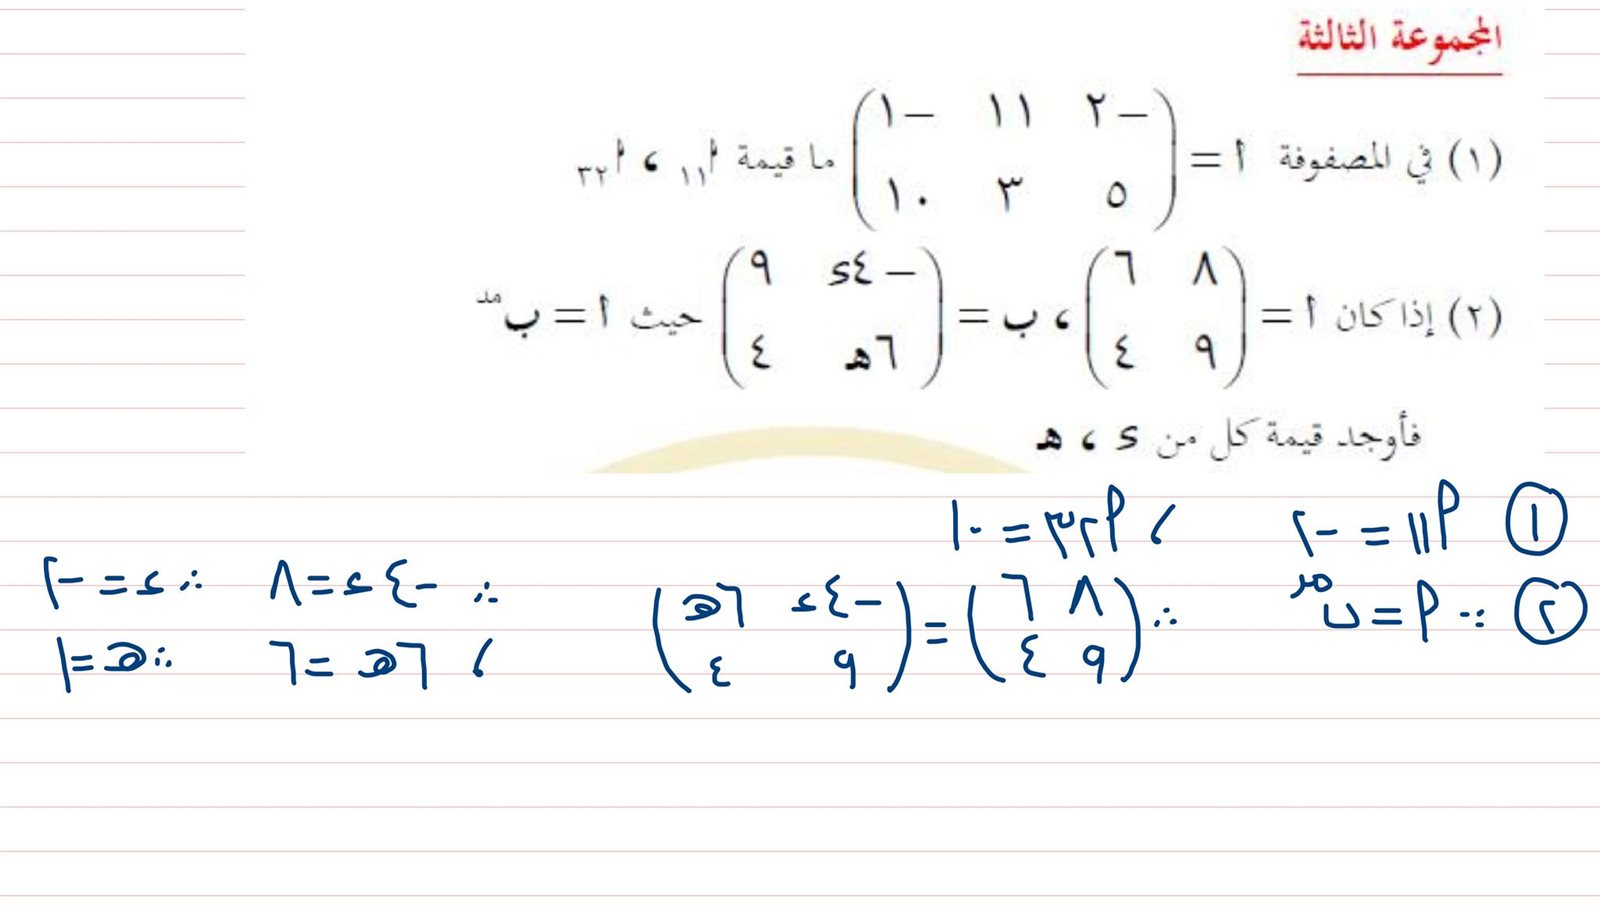 المجموعة الثالثة
(١) في المصفوفة أ = ( -٢ ١١ -١
٥ ٣ ١٠ ) ما قيمة أ١١ ، أ٢٣
(٢) إذا كان أ = ( ٨ ٦
٩ ٤ ) ، ب = ( -٤ء ٩
٦ھ ٤ ) حيث أ = ب مد
فأوجد قيمة كل من ء ، ھ
① أ١١ = -٢ ، أ٢٣ = ١٠
② ∵ أ = ب مد ∴ ( ٨ ٦
٩ ٤ ) = ( -٤ء ٦ھ
٩ ٤ ) ∴ -٤ء = ٨ ∴ ء = -٢
، ٦ھ = ٦ ∴ ھ = ١